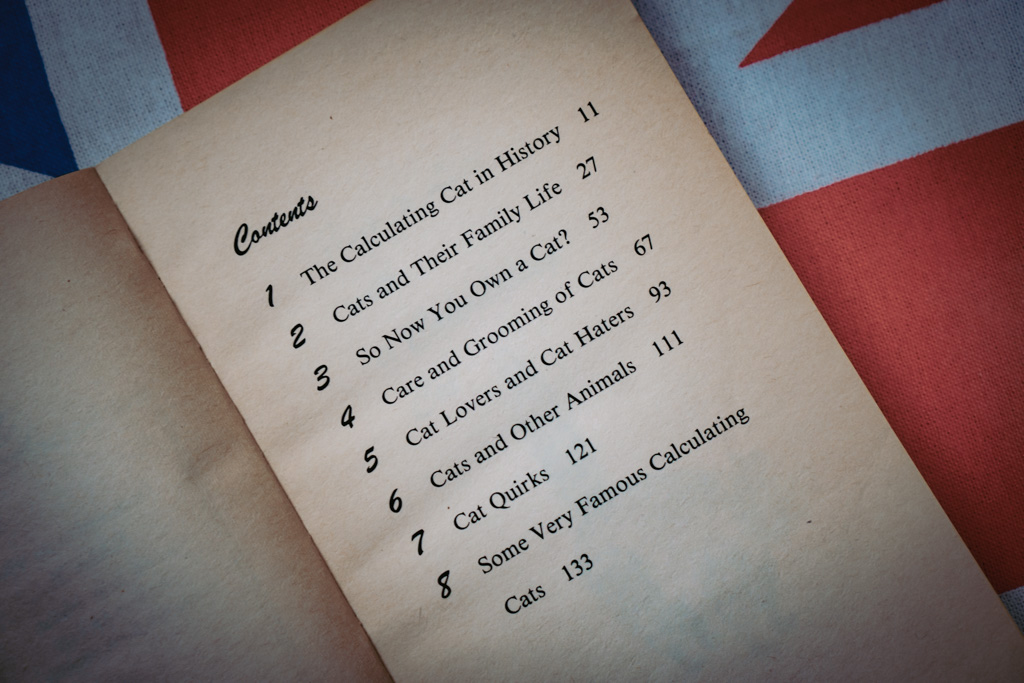 Contents
1 The Calculating Cat in History 11
2 Cats and Their Family Life 27
3 So Now You Own a Cat? 53
4 Care and Grooming of Cats 67
5 Cat Lovers and Cat Haters 93
6 Cats and Other Animals 111
7 Cat Quirks 121
8 Some Very Famous Calculating
Cats 133